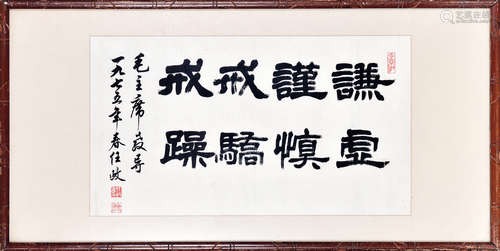 謙虛
謹慎
戒驕
戒躁
毛主席教导
一九七五年春任政